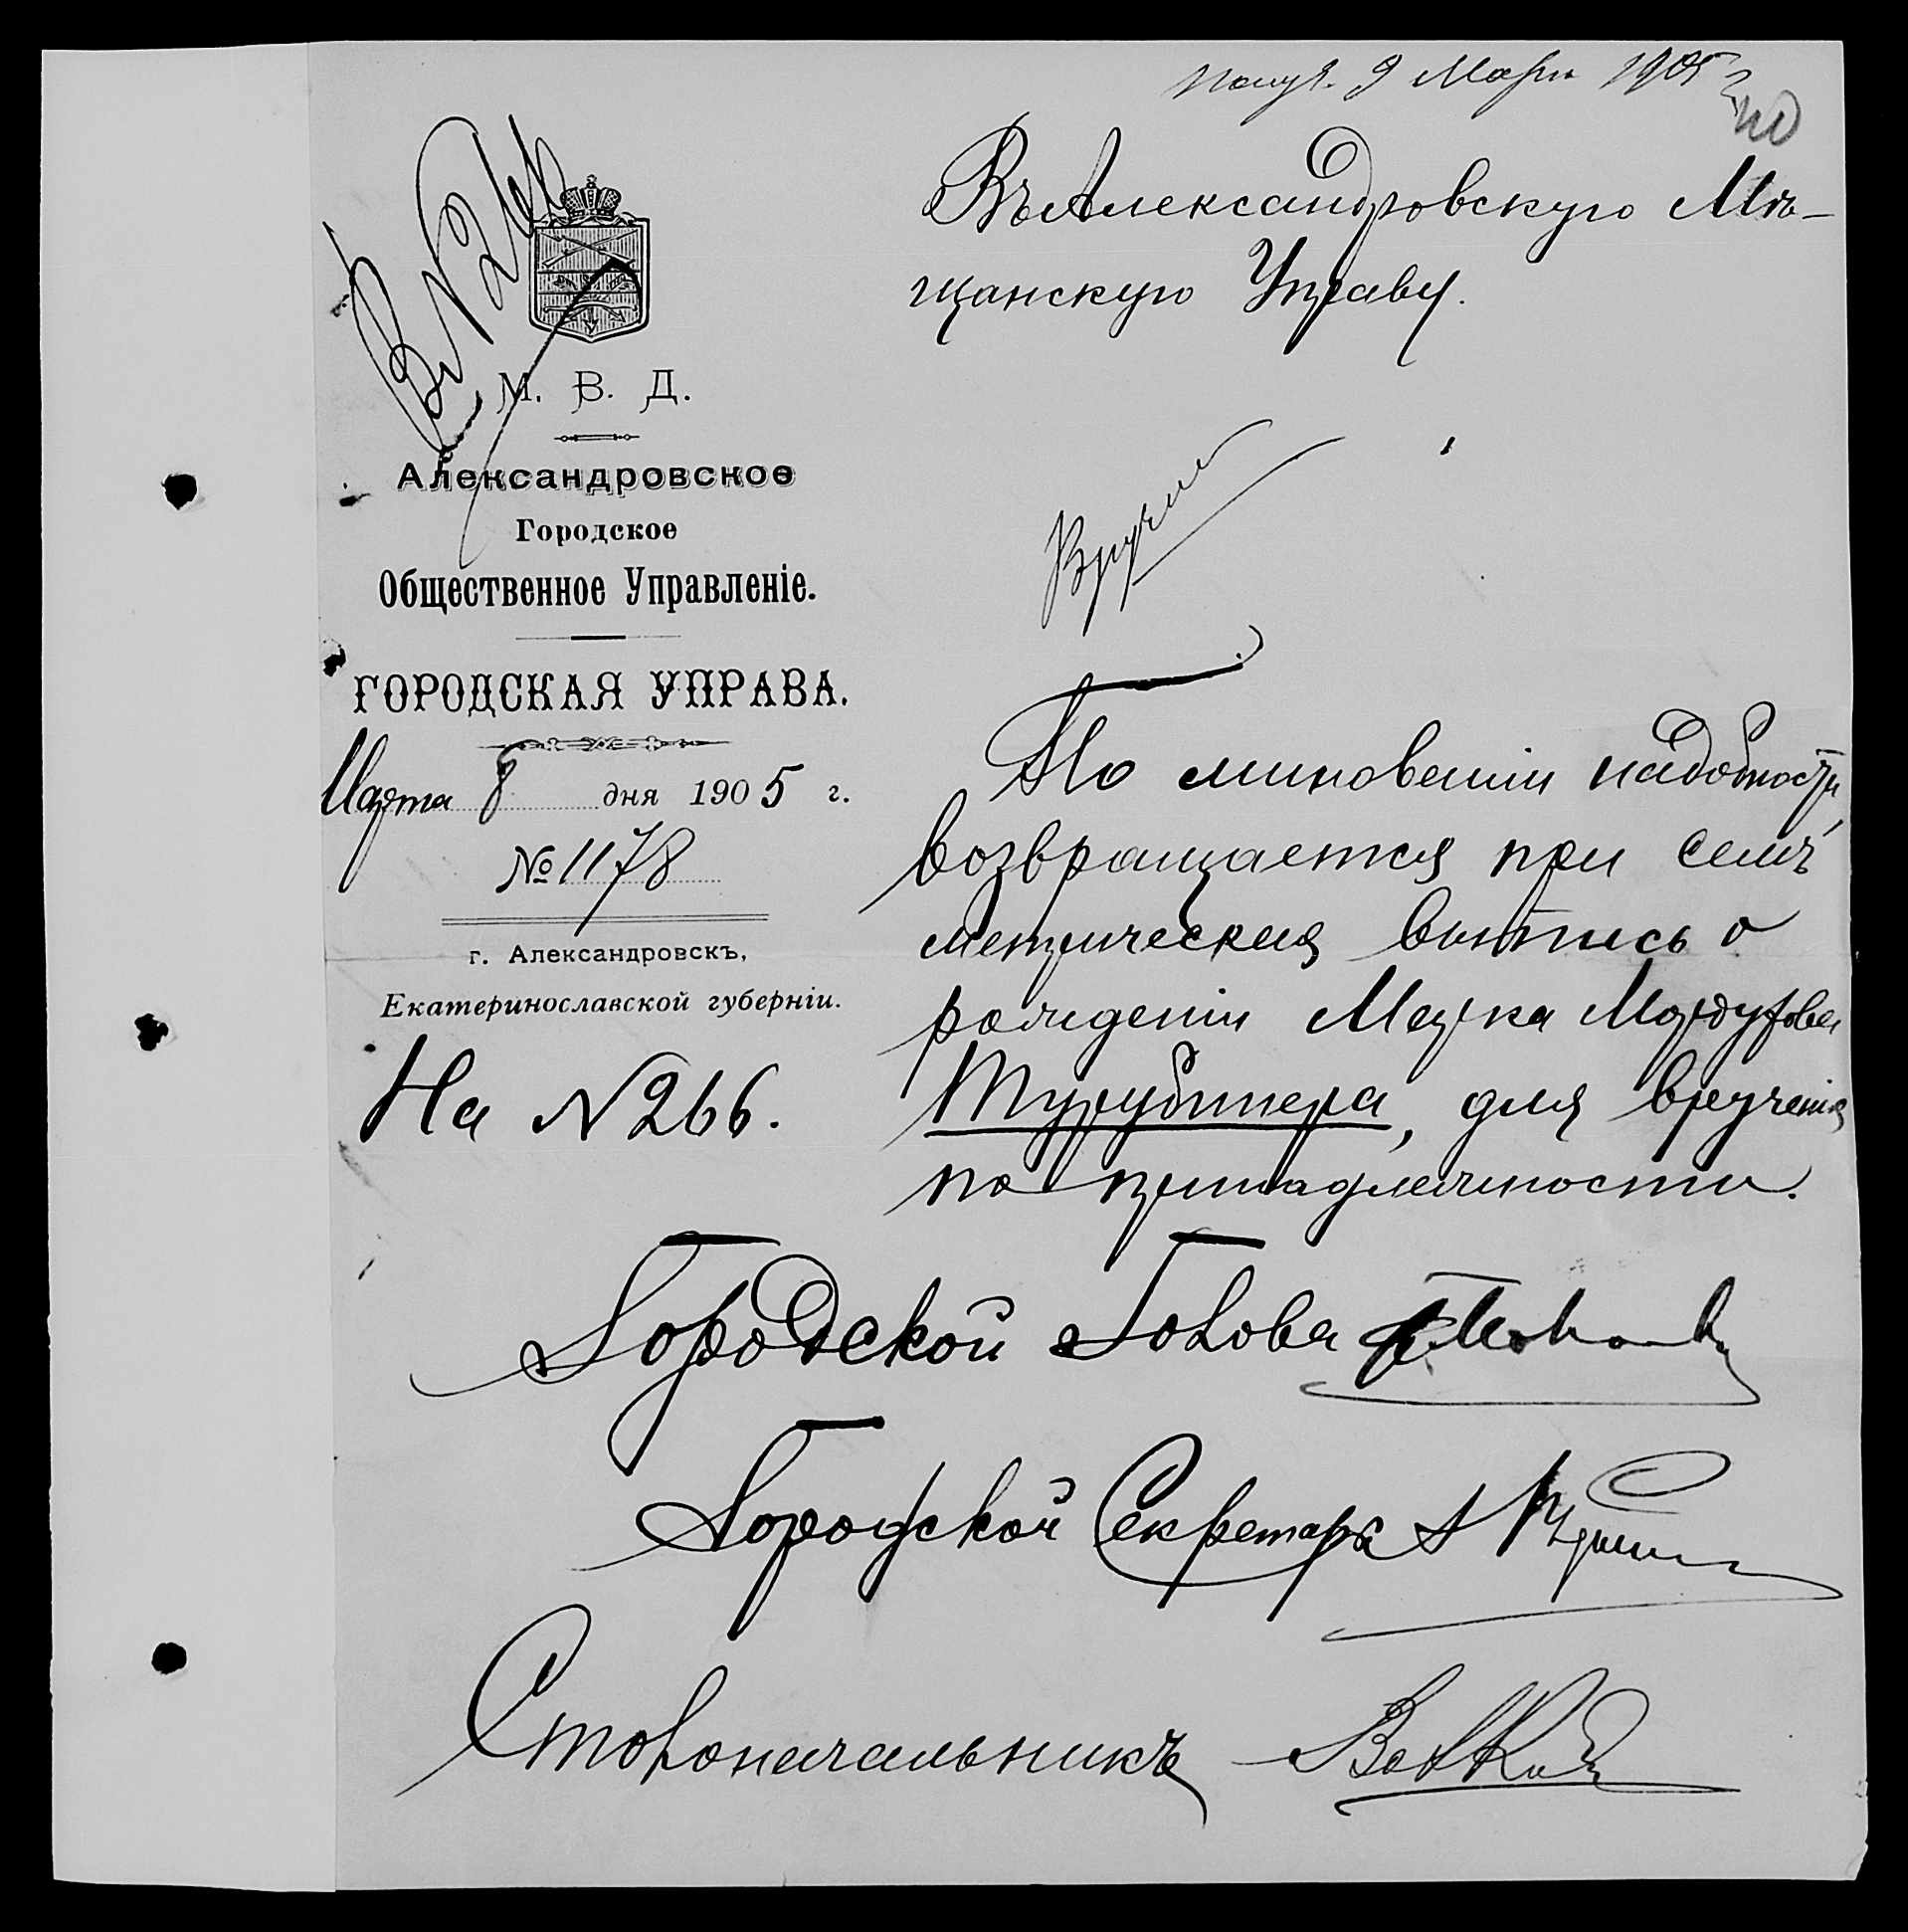 Получ. 9 Марта 1905 г.
Въ Александровскую Мѣ-
щанскую Управу.
М. В. Д.
Александровское
Городское
Общественное Управленіе.
ГОРОДСКАЯ УПРАВА.
Марта 8 дня 1905 г.
№ 1178
г. Александровскъ,
Екатеринославской губерніи.
На № 266.
По миновеніи надобности,
возвращается при семъ
метрическая выпись о
рожденіи Марка Мордухова
Турубинера, для врученія
по принадлежности.
Городской Голова
Городской Секретарь
Столоначальникъ